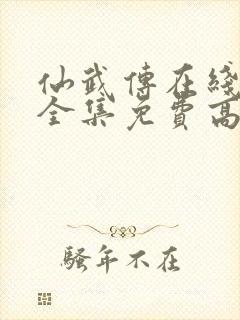 仙武傳在綫
全集免費高
騷年不在